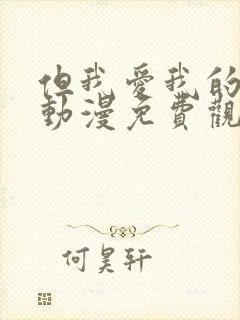 但我愛我的
動漫免費觀
何昊軒